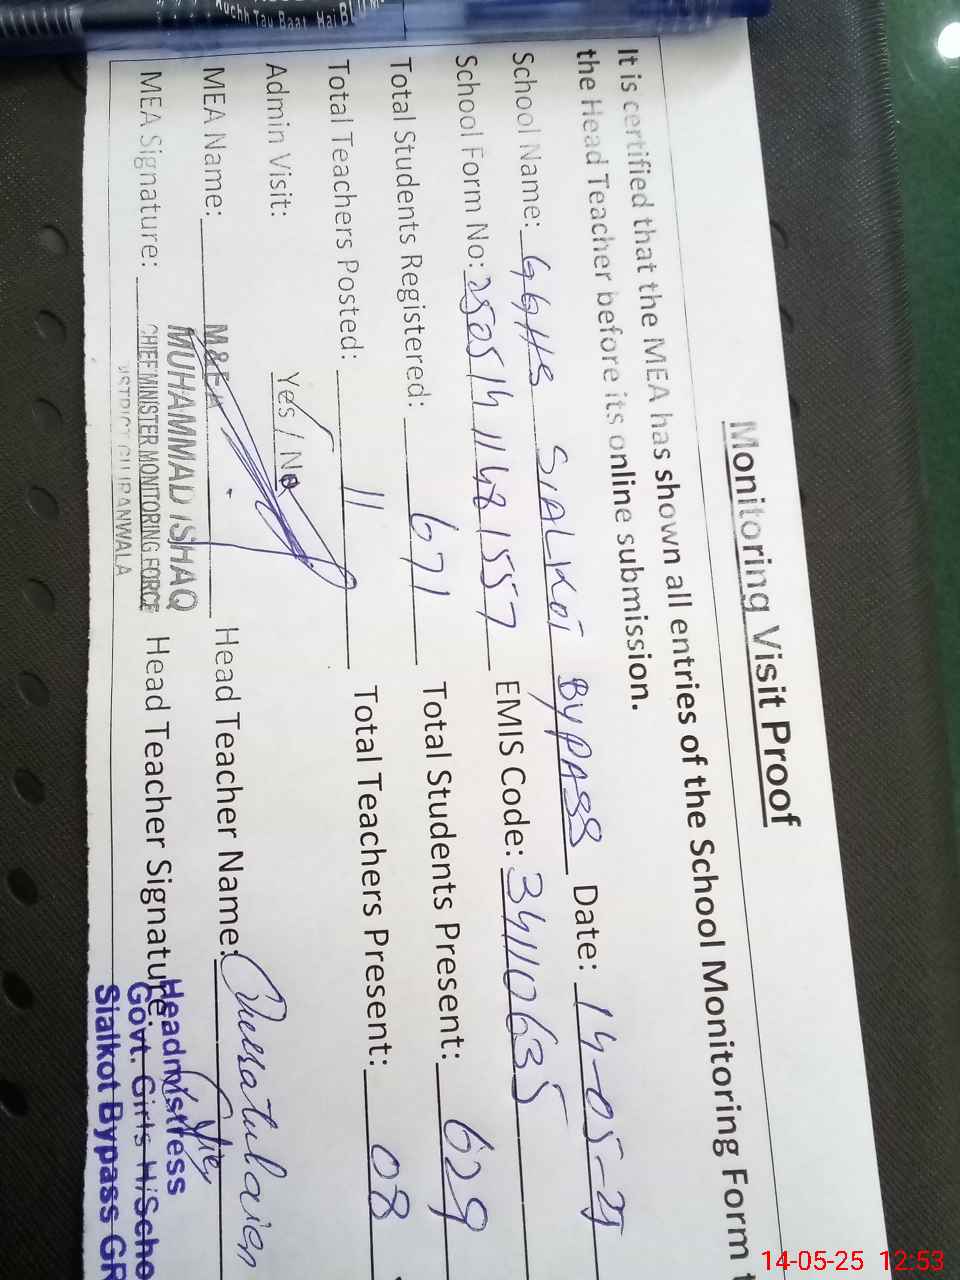 Kuchh Tau Baat Hai
Monitoring Visit Proof
It is certified that the MEA has shown all entries of the School Monitoring Form t
the Head Teacher before its online submission.
School Name: GGHS SIALKOT BYPASS Date: 14-05-25
School Form No: 25051411481557 EMIS Code: 34110635
Total Students Registered: 671 Total Students Present: 629
Total Teachers Posted: 11 Total Teachers Present: 08
Admin Visit: Yes / No
MEA Name: M&EA Head Teacher Name: Qurratulaien
MUHAMMAD ISHAQ
MEA Signature: CHIEF MINISTER MONITORING FORCE Head Teacher Signature:
DISTRICT GUJRANWALA
Headmistress
Govt. Girls H/Scho
Sialkot Bypass GR
14-05-25 12:53